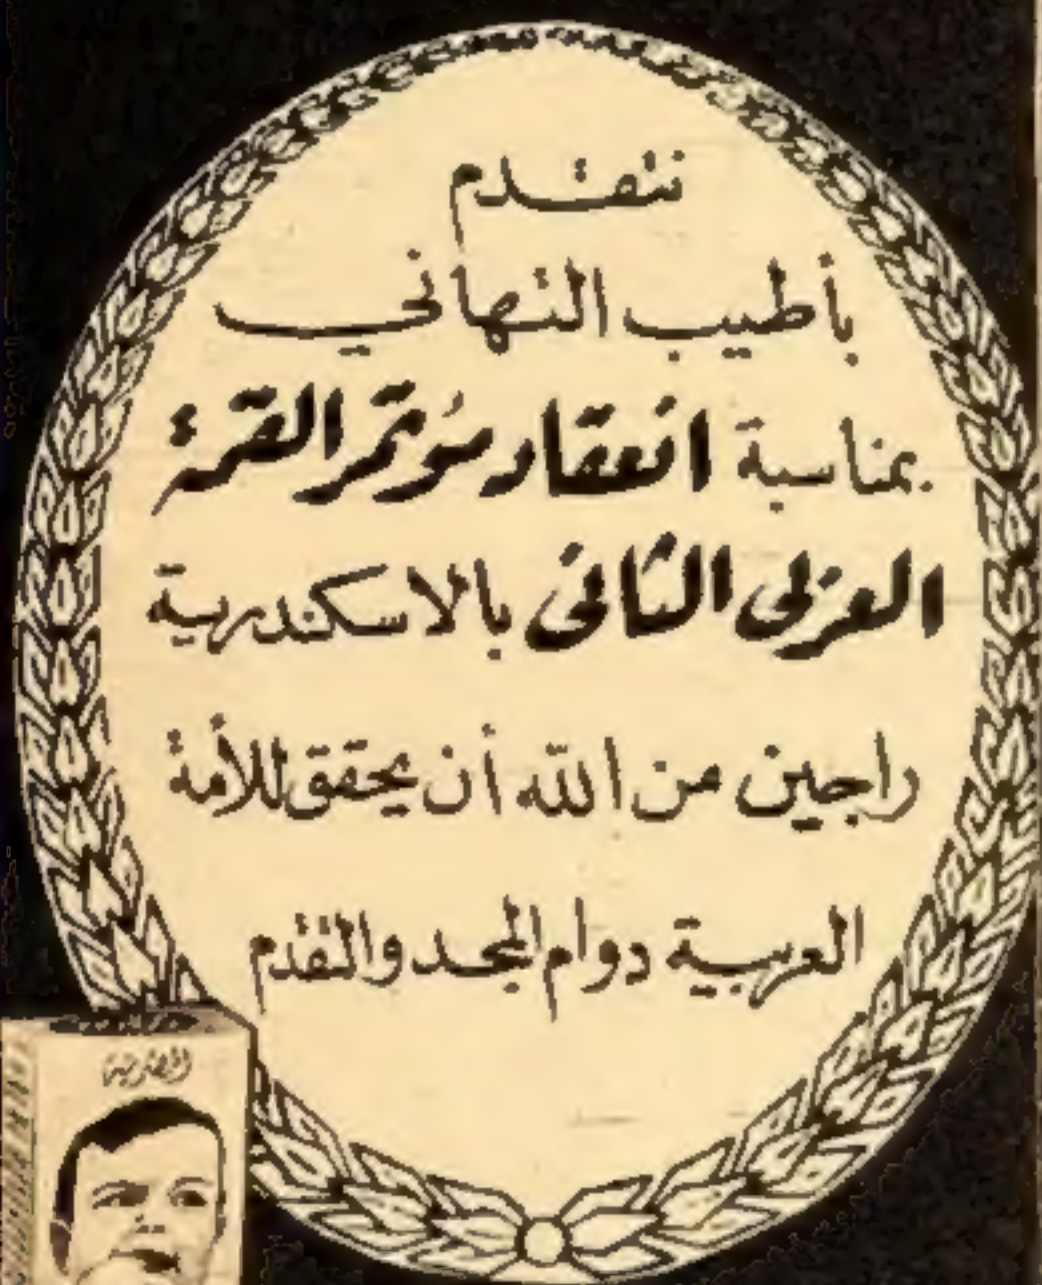 نتقدم
بأطيب التهاني
بمناسبة انعقاد مؤتمر القمة
العربى الثانى بالاسكندرية
راجين من الله أن يحقق للأمة
العربية دوام المجد والتقدم